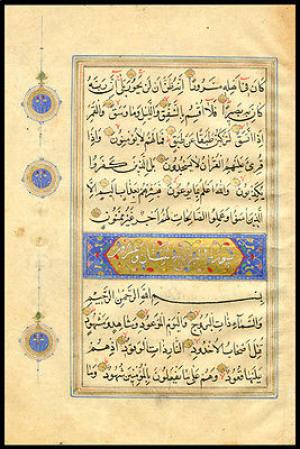 كان في اهله مسرورا انه ظن ان لن يحور بلى ان ربه
كان به بصيرا فلا اقسم بالشفق والليل وما وسق والقمر
اذا اتسق لتركبن طبقا عن طبق فما لهم لا يؤمنون واذا
قرئ عليهم القرآن لا يسجدون بل الذين كفروا
يكذبون والله اعلم بما يوعون فبشرهم بعذاب اليم الا
الذين آمنوا وعملوا الصالحات لهم اجر غير ممنون
سورة البروج
بسم الله الرحمن الرحيم
والسماء ذات البروج واليوم الموعود وشاهد ومشهود
قتل اصحاب الاخدود النار ذات الوقود اذ هم
عليها قعود وهم على ما يفعلون بالمؤمنين شهود وما